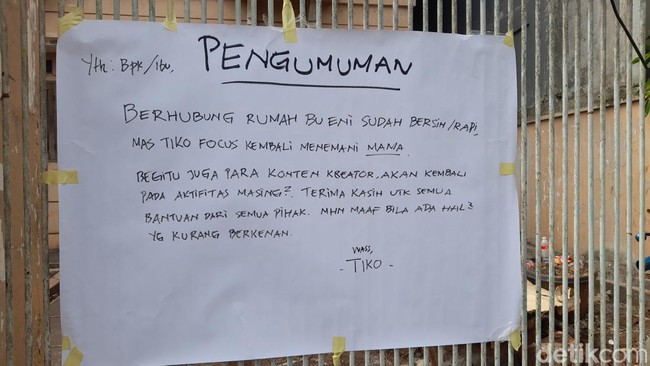 PENGUMUMAN
Yth: Bpk/Ibu,
BERHUBUNG RUMAH BU ENI SUDAH BERSIH/RAPI,
MAS TIKO FOCUS KEMBALI MENEMANI MAMA.
BEGITU JUGA PARA KONTEN KREATOR, AKAN KEMBALI
PADA AKTIFITAS MASING². TERIMA KASIH UTK SEMUA
BANTUAN DARI SEMUA PIHAK. MHN MAAF BILA ADA HAL²
YG KURANG BERKENAN.
WASS,
- TIKO -
detikcom